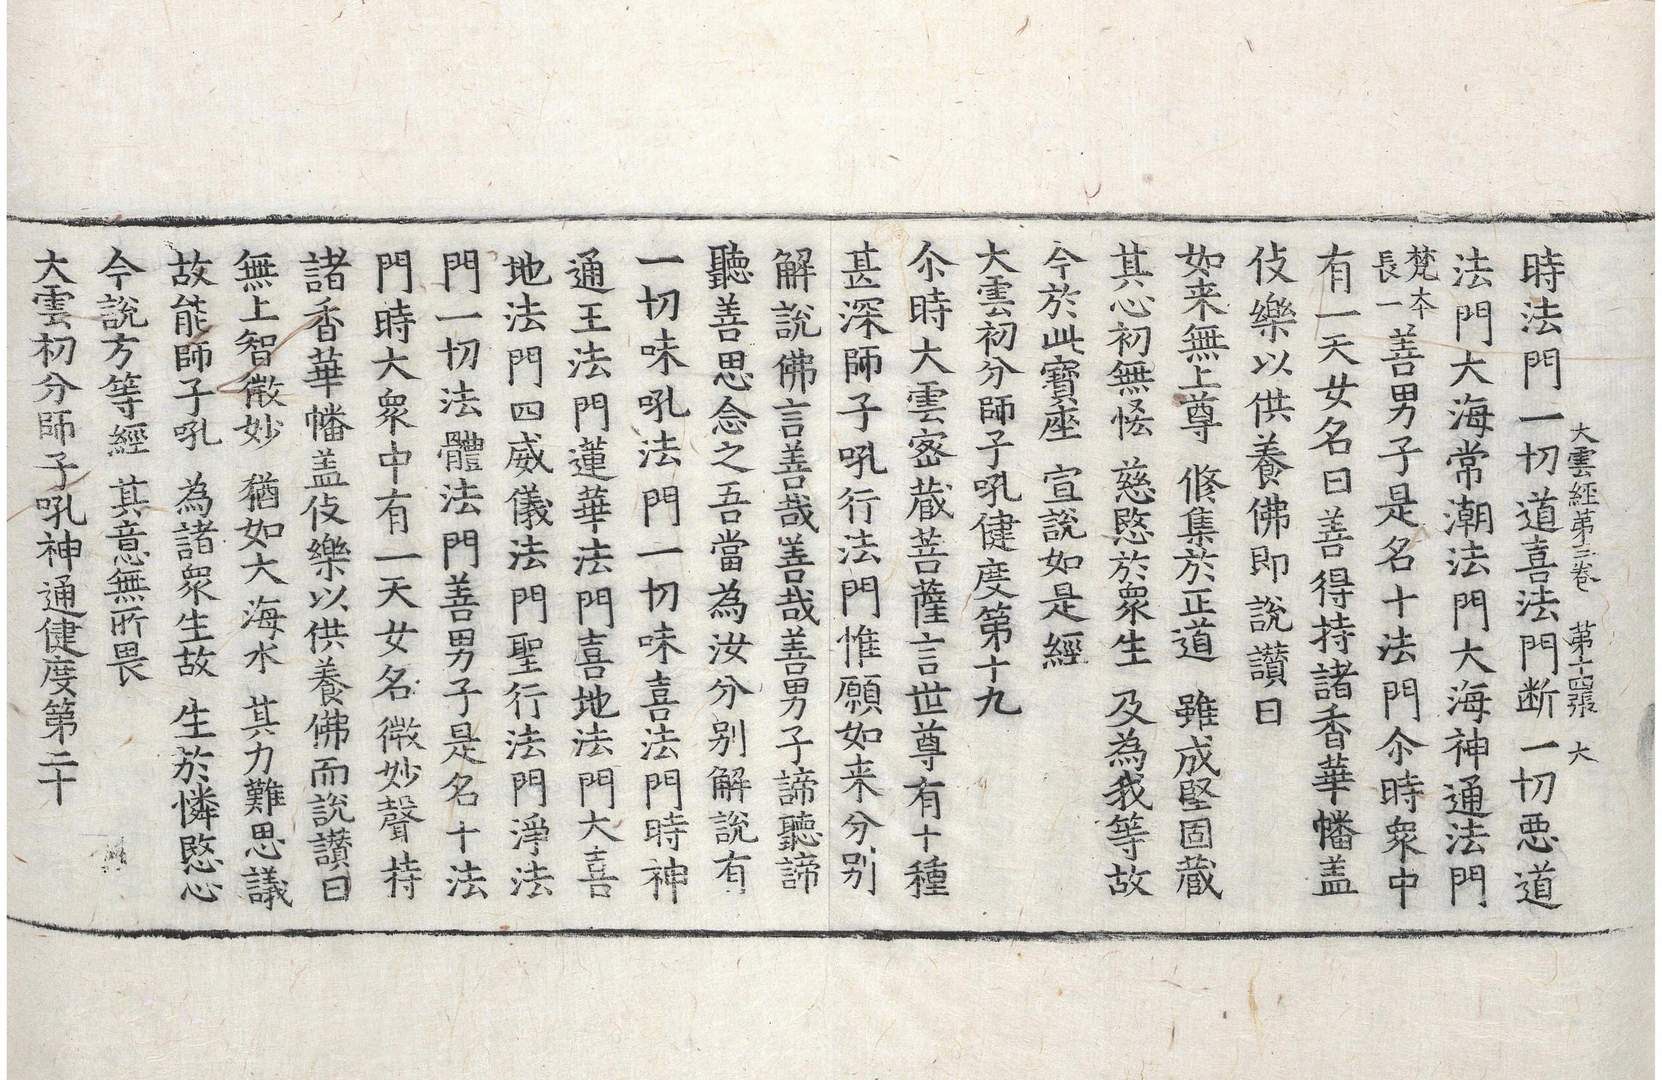 大雲經第三卷 第十四張 大
時法門一切道喜法門断一切惡道
法門大海常潮法門大海神通法門
梵本長一善男子是名十法門尒時衆中
有一天女名曰善得持諸香華幡盖
伎樂以供養佛即說讃曰
如来無上尊 修集於正道 雖成堅固蔵
其心初無恡 慈愍於衆生 及為我等故
今於此寶座 宣說如是經
大雲初分師子吼健度第十九
尒時大雲密蔵菩薩言世尊有十種
甚深師子吼行法門惟願如来分别
解說佛言善哉善哉善男子諦聽諦
聽善思念之吾當為汝分别解說有
一切味吼法門一切味喜法門時神
通王法門蓮華法門喜地法門大喜
地法門四威儀法門聖行法門淨法
門一切法體法門善男子是名十法
門時大衆中有一天女名微妙聲持
諸香華幡盖伎樂以供養佛而說讃曰
無上智微妙 猶如大海水 其力難思議
故能師子吼 為諸衆生故 生於憐愍心
今說方等經 其意無所畏
大雲初分師子吼神通健度第二十